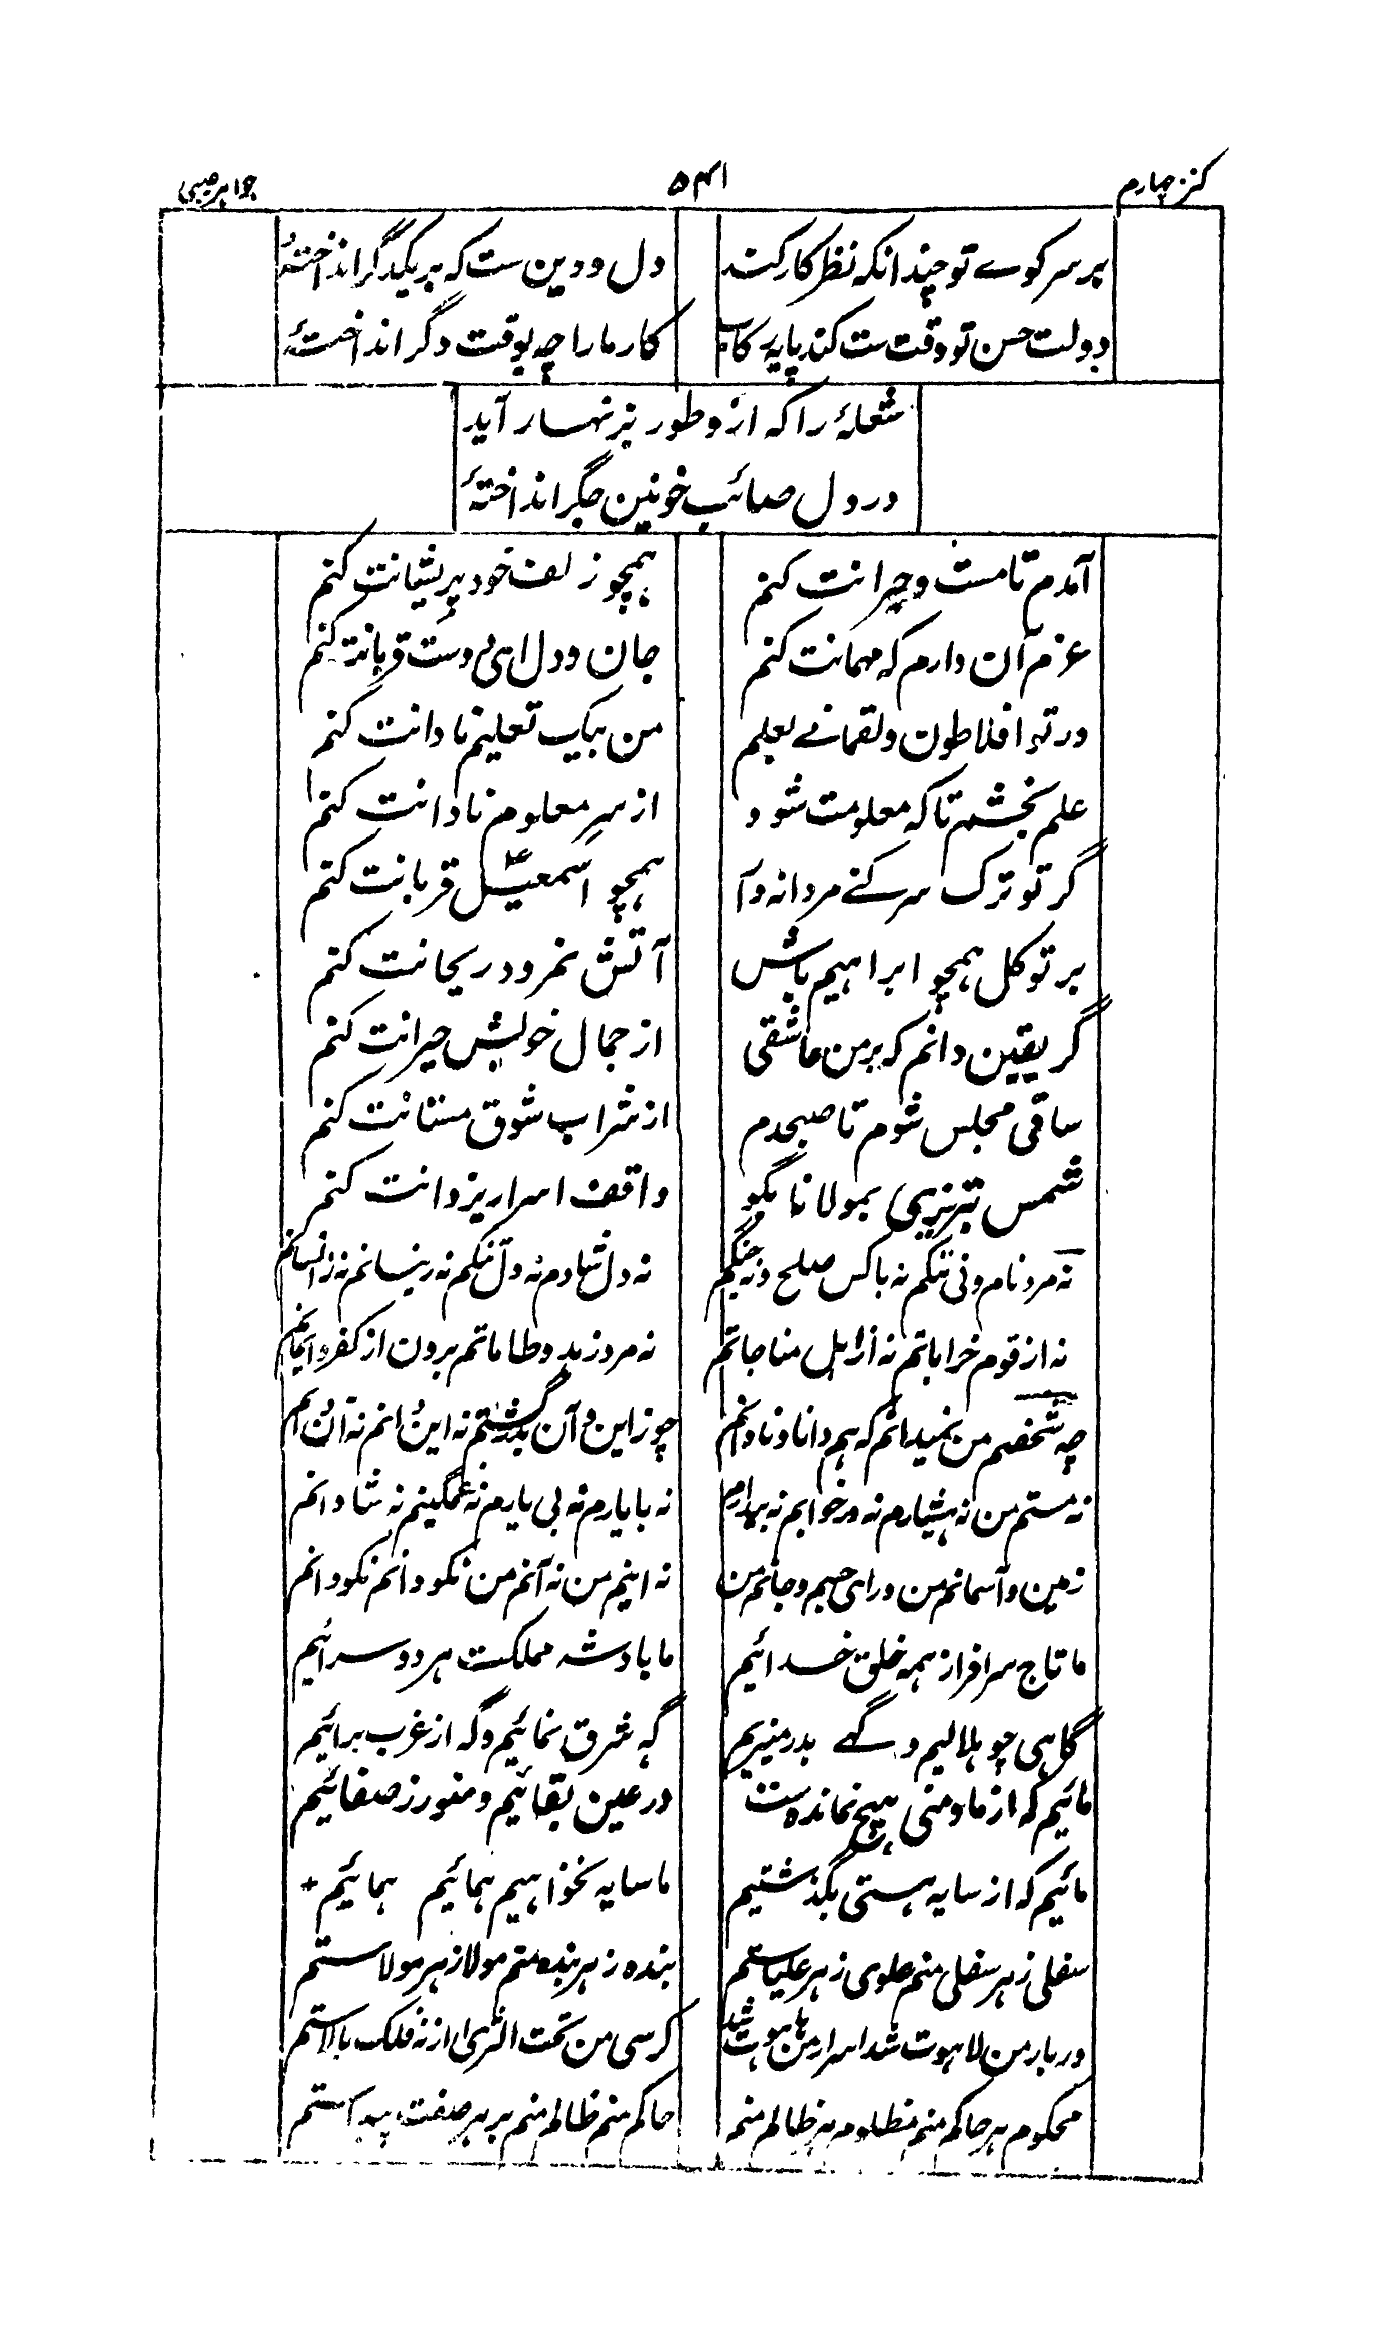 کنز چہارم
۵۴۱
جواہر صبی
بر سر کوے تو چندانکہ نظر کار کند
دل و دین ست کہ بر یکدگر انداختہٗ
دولت حسن تو وقت ست کند پایہ رکاب
کار ما را چہ بوقت دگر انداختہٗ
شعلۂ را کہ ازو طور بزنہار آید
در دل صائب خونین جگر انداختۂ
آمدم تا مست و حیرانت کنم
ہمچو زلف خود پریشانت کنم
عزم آن دارم کہ مہمانت کنم
جان و دل ای دوست قربانت کنم
ور تو افلاطون و لقمانے بعلم
من بیک تعلیم نادانت کنم
علم بخشم تا کہ معلومت شود
از سرِ معلوم نادانت کنم
گر تو ترک سر کنے مردانہ وآ
ہمچو اسمعیلؑ قربانت کنم
بر توکل ہمچو ابراہیم باش
آتش نمرود ریحانت کنم
گر یقین دانم کہ بر من عاشقی
از جمال خویش حیرانت کنم
ساقی مجلس شوم تا صبحدم
از شراب شوق مستانت کنم
شمس تبریزی بمولانا بگو
واقف اسرار یزدانت کنم
نہ مرد نام و نی ننگم نہ با کس صلح و نہ جنگم
نہ دل شادم نہ دل تنگم نہ زینسانم نہ زانسانم
نہ از قوم خراباتم نہ از اہل مناجاتم
نہ مرد زہد و طاماتم برون از کفر و ایمانم
چہ شخصم من نمیدانم کہ ہم دانا و نادانم
چو زاین و آن بگذشتم نہ این دانم نہ آن دانم
نہ مستم من نہ ہشیارم نہ در خوابم نہ بیدارم
نہ با یارم نہ بی یارم نہ غمگینم نہ شادانم
زمین و آسمانم من ورای جسم و جانم من
نہ اینم من نہ آنم من نکو دانم نکو دانم
ما تاج سرافراز ہمہ خلق خدائیم
ما بادشہ مملکت ہر دو سرائیم
گاہی چو ہلالیم و گہے بدر منیریم
گہ شرق نمائیم و گہ از غرب برائیم
مائیم کہ از ما و منی ہیچ نماندہ ست
در عین بقائیم و منور ز صفائیم
مائیم کہ از سایہ ہستی بگذشتیم
ما سایہ نخواہیم ہمائیم ہمائیم
سفلی ز ہر سفلی منم علوی ز ہر علیاستم
بندہ ز ہر بندہ منم مولا ز ہر مولاستم
دربار من لاہوت شد اسرار من ہاہوت شد
کرسی من تحت الثری از نہ فلک بالاستم
محکوم ہر حاکم منم مظلوم ہر ظالم منم
حاکم منم ظالم منم بر ہر صفت پیداستم